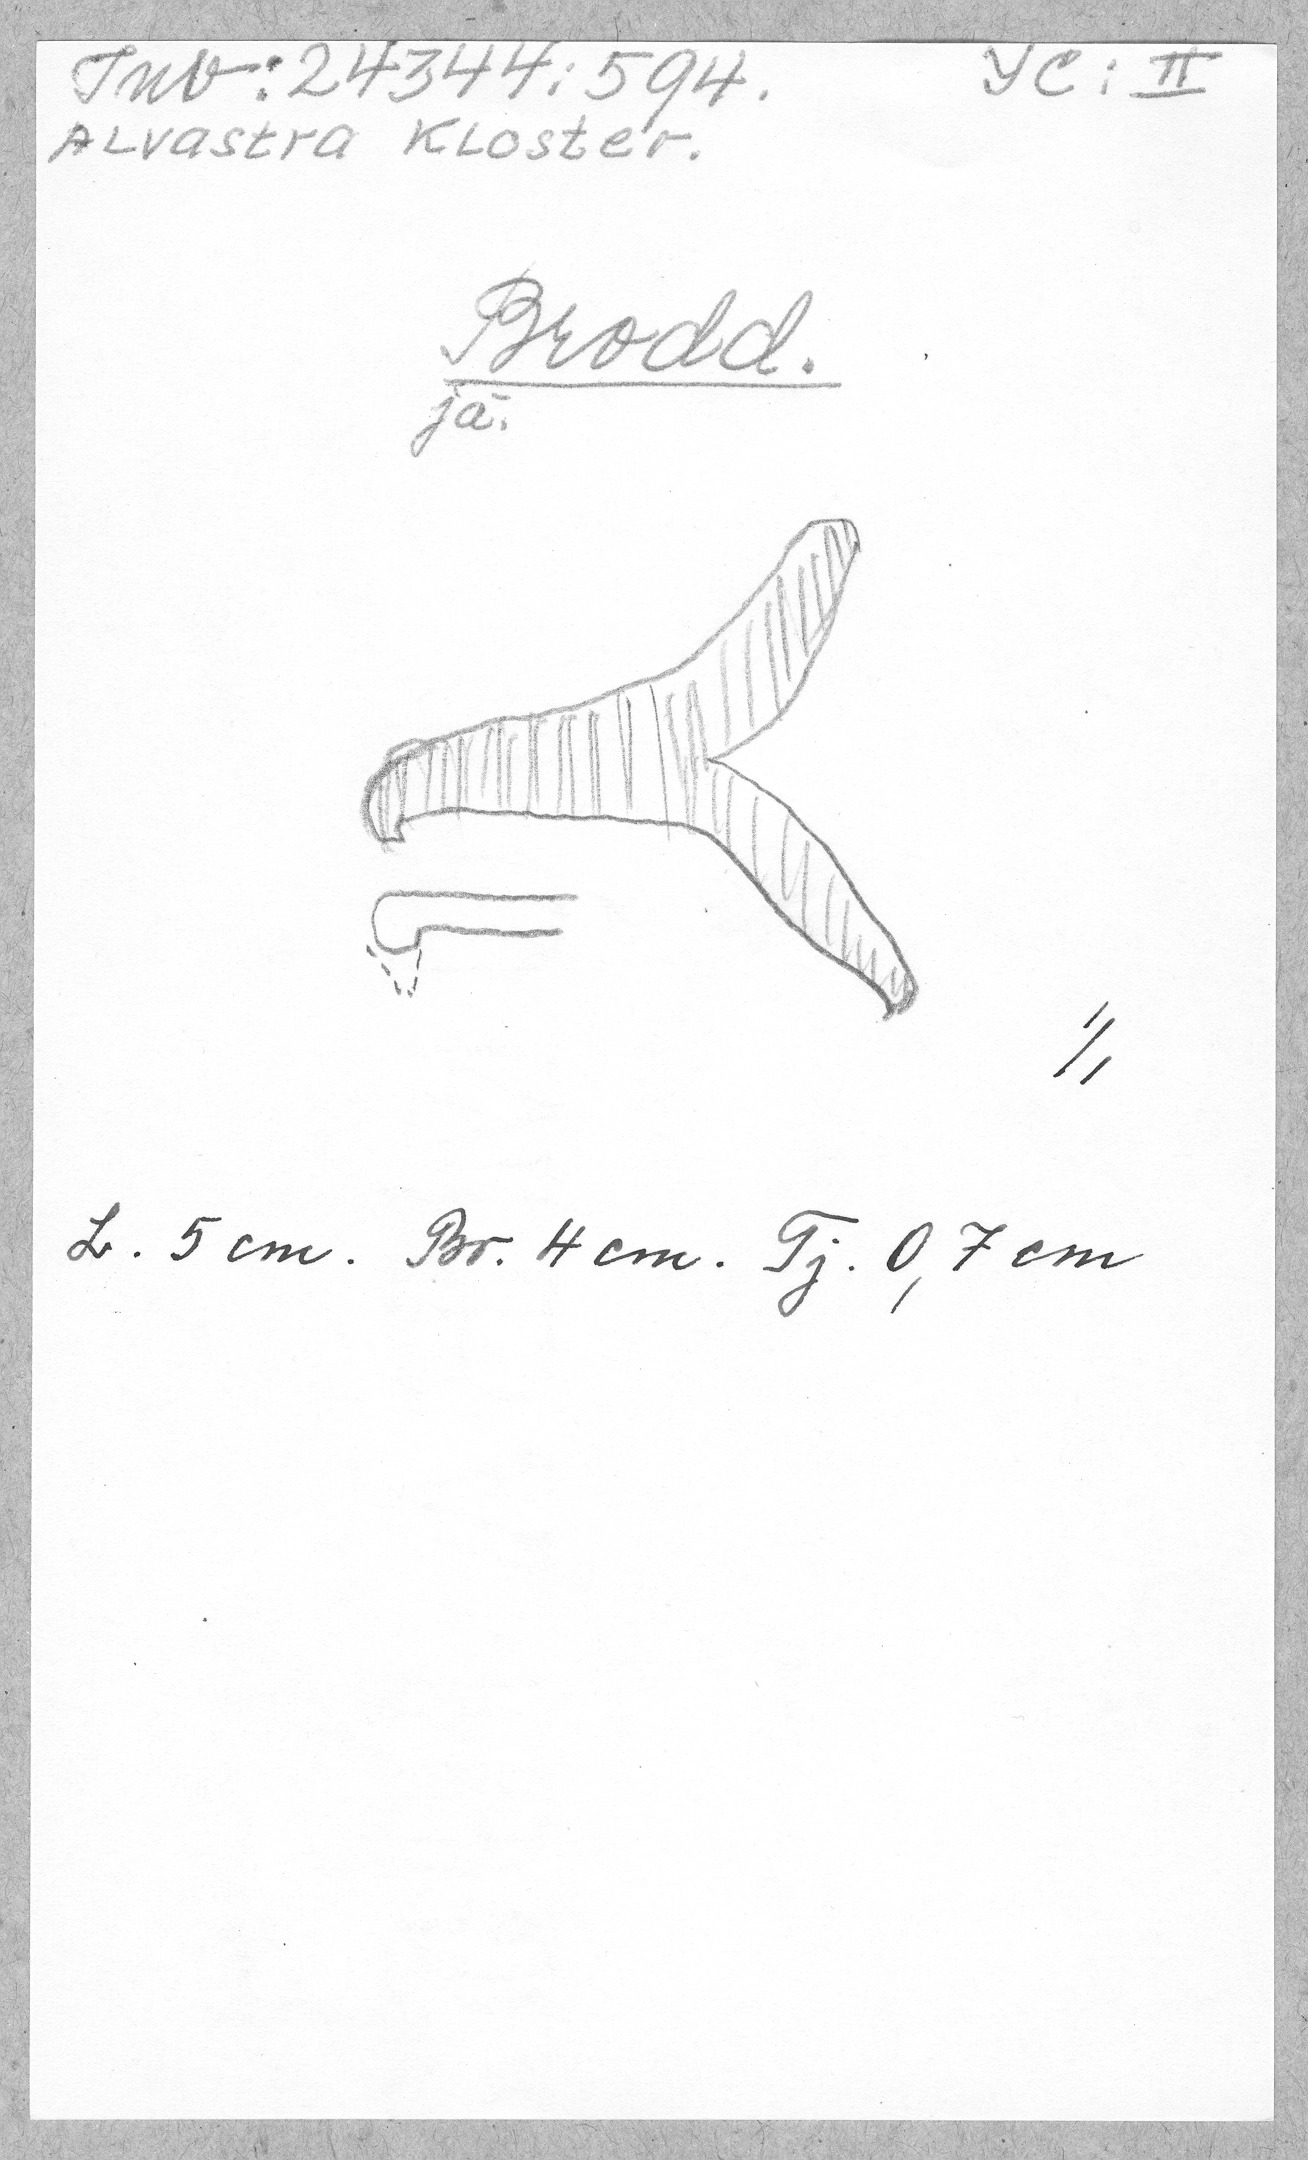 Inv: 24344: 594. YC: II
ALvastra KLoster.
Brodd.
jä.
1/1
L. 5 cm. Br. 4 cm. Tj. 0,7 cm